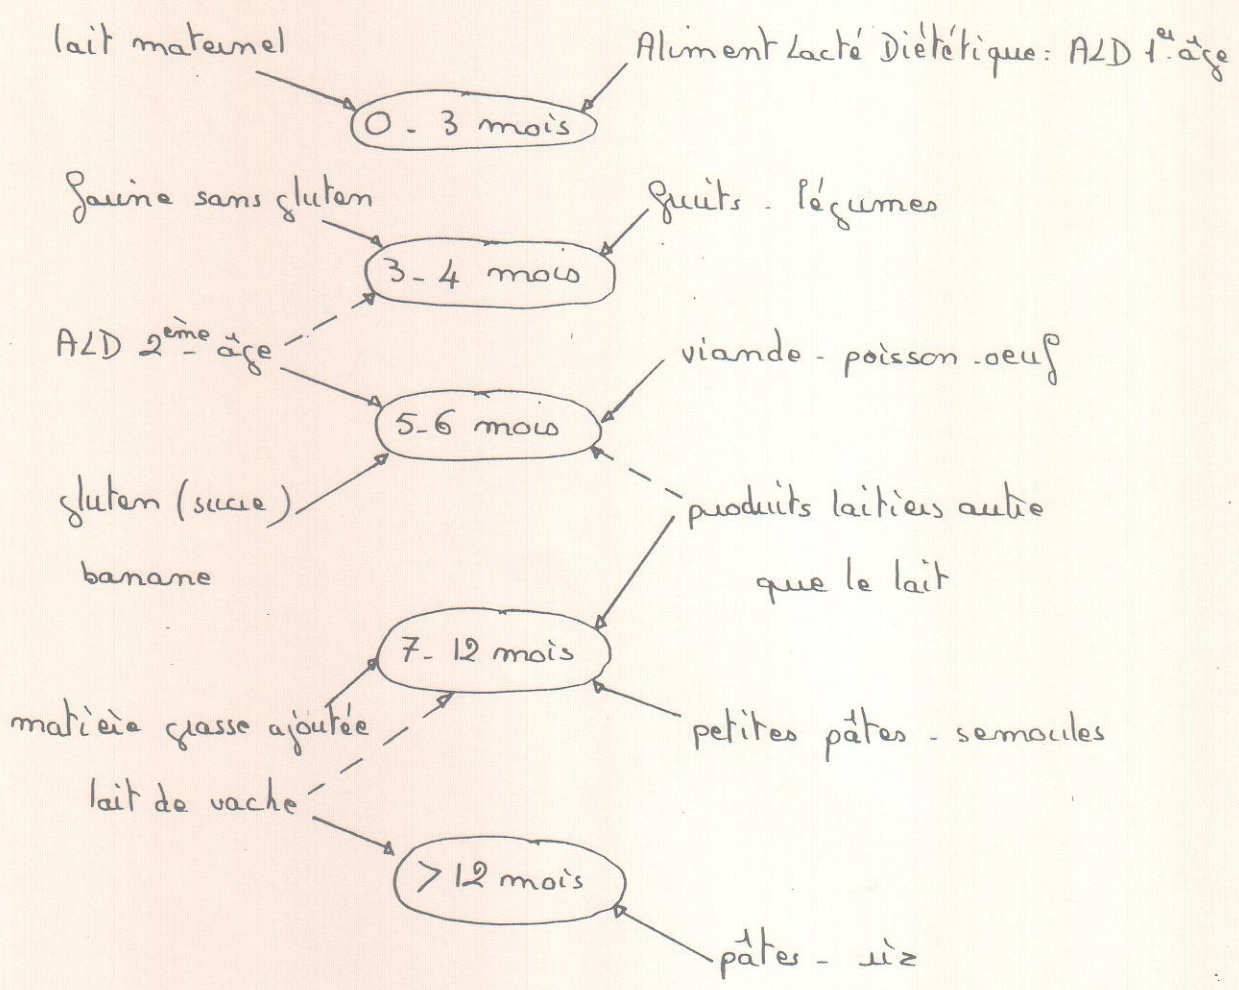 lait maternel
Aliment Lacté Diététique : ALD 1er âge
0 - 3 mois
farine sans gluten
fruits - légumes
3 - 4 mois
ALD 2ème âge
viande - poisson - oeuf
5 - 6 mois
gluten (sucre)
produits laitiers autre
banane
que le lait
7 - 12 mois
matière grasse ajoutée
petites pâtes - semoules
lait de vache
> 12 mois
pâtes - riz